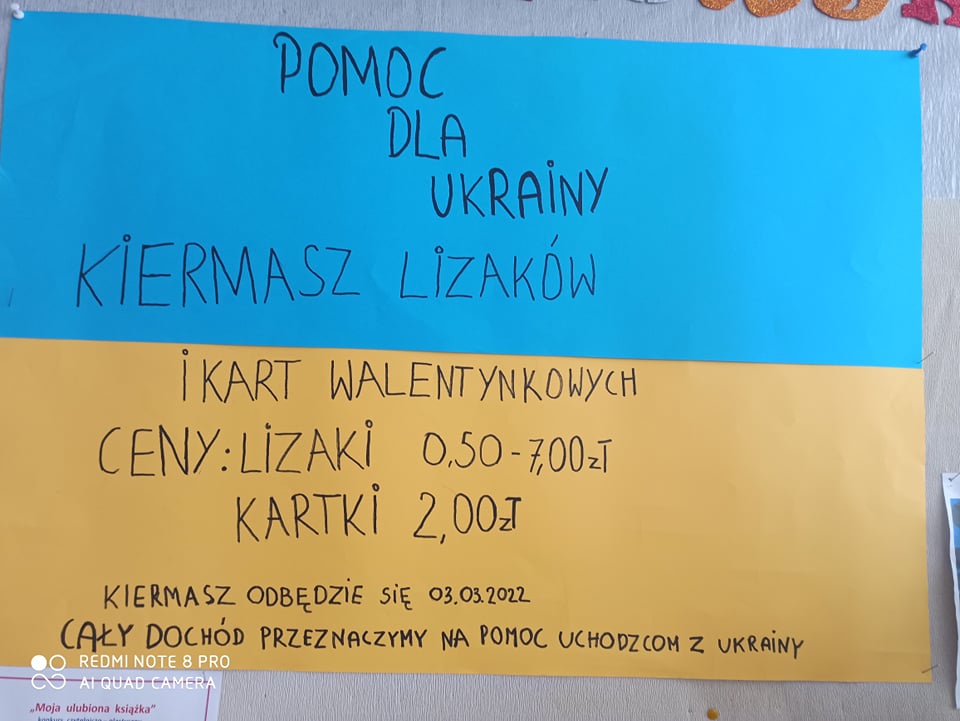 POMOC
DLA
UKRAINY
KIERMASZ LIZAKÓW
I KART WALENTYNKOWYCH
CENY: LIZAKI 0,50 - 7,00 zł
KARTKI 2,00 zł
KIERMASZ ODBĘDZIE SIĘ 03.03.2022
CAŁY DOCHÓD PRZEZNACZYMY NA POMOC UCHODZCOM Z UKRAINY
REDMI NOTE 8 PRO
AI QUAD CAMERA
„Moja ulubiona książka"